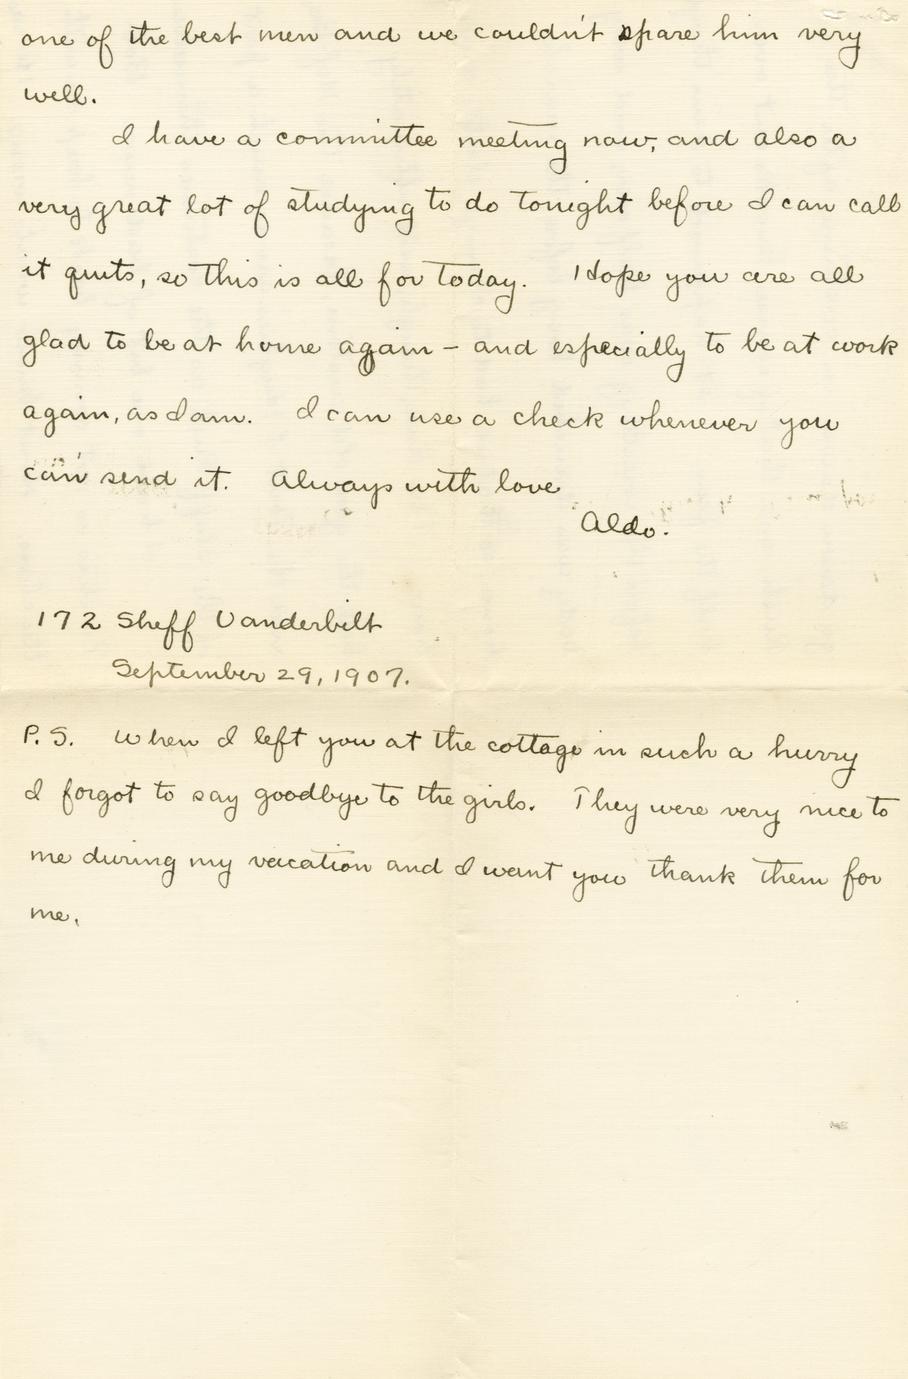 one of the best men and we couldn't spare him very
well.
I have a committee meeting now, and also a
very great lot of studying to do tonight before I can call
it quits, so this is all for today. Hope you are all
glad to be at home again - and especially to be at work
again, as I am. I can use a check whenever you
can send it. Always with love
Aldo.
172 Sheff Vanderbilt
September 29, 1907.
P.S. When I left you at the cottage in such a hurry
I forgot to say goodbye to the girls. They were very nice to
me during my vacation and I want you thank them for
me.